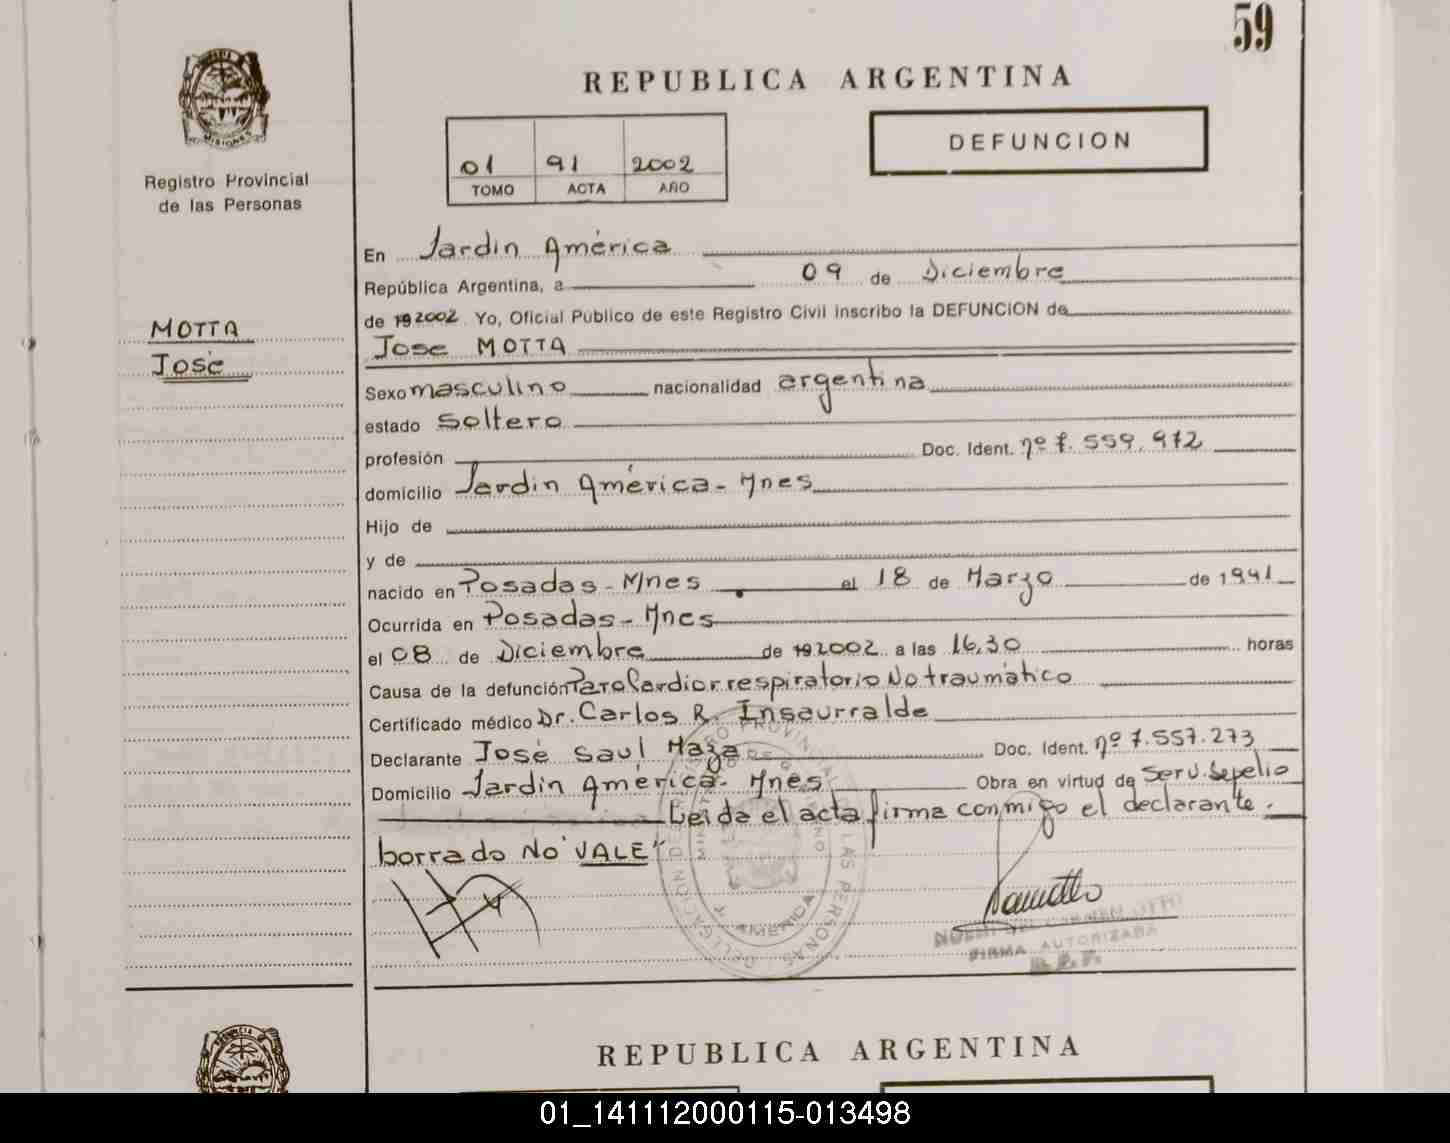 59
REPUBLICA ARGENTINA
DEFUNCION
01 91 2002
TOMO ACTA AÑO
Registro Provincial
de las Personas
MOTTA
José
En Jardin América
República Argentina, a 09 de Diciembre
de 192002. Yo, Oficial Público de este Registro Civil inscribo la DEFUNCION de
Jose MOTTA
Sexo masculino nacionalidad argentina
estado soltero
profesión Doc. Ident. nº 7.559.972
domicilio Jardin América - Mnes
Hijo de
y de
nacido en Posadas - Mnes el 18 de Marzo de 1941
Ocurrida en Posadas - Mnes
el 08 de Diciembre de 192002 a las 16,30 horas
Causa de la defunción Paro Cardiorrespiratorio No traumático
Certificado médico Dr. Carlos R. Insaurralde
Declarante José Saul Maza Doc. Ident. nº 7.557.273
Domicilio Jardin América - Mnes Obra en virtud de Serv. Sepelio
Leida el acta firma conmigo el declarante.
borrado NO "VALE"
FIRMA AUTORIZADA
REPUBLICA ARGENTINA
01_141112000115-013498